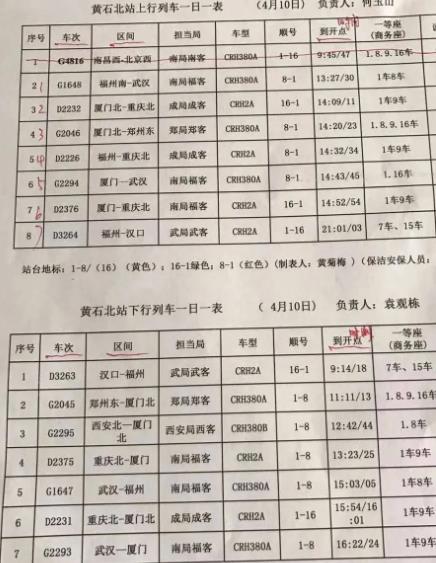 黄石北站上行列车一日一表 （4月10日） 负责人：何玉山
时间
序号 车次 区间 担当局 车型 顺号 到开点 一等座（商务座）
1 G4816 南昌西-北京西 南局南客 CRH380A 1-16 9:45/47 1.8.9.16车
2 1 G1648 福州南-武汉 南局福客 CRH380A 8-1 13:27/30 1车8车
3 2 D2232 厦门北-重庆北 成局成客 CRH2A 16-1 14:09/11 1车9车
4 3 G2046 厦门北-郑州东 郑局郑客 CRH380A 8-1 14:20/23 1.8.9.16车
5 4 D2226 福州-重庆北 成局成客 CRH2A 8-1 14:32/34 1车9车
6 5 G2294 厦门—武汉 南局福客 CRH380A 8-1 14:43/45 1.16车
7 6 D2376 厦门-重庆北 南局福客 CRH2A 16-1 14:52/54 1车9车
8 7 D3264 福州-汉口 武局武客 CRH2A 1-16 21:01/03 7车、15车
站台地标：1-8/（16）（黄色）；16-1绿色；8-1（红色）（制表人：黄菊梅 ）（保洁安保人员：
黄石北站下行列车一日一表 （ 4月10日） 负责人：袁观栋
序号 车次 区间 担当局 车型 顺号 到开点 一等座（商务座）
1 D3263 汉口-福州 武局武客 CRH2A 16-1 9:14/18 7车、15车
2 G2045 郑州东-厦门北 郑局郑客 CRH380A 1-8 11:11/13 1.8.9.16车
3 G2295 西安北—厦门北 西安局西客 CRH380B 1-8 12:42/44 1.8车
4 D2375 重庆北-厦门 南局福客 CRH2A 1-8 13:23/25 1车9车
5 G1647 武汉-福州 南局福客 CRH380A 1-8 15:03/05 1车8车
6 D2231 重庆北-厦门北 成局成客 CRH2A 1-16 15:54/16:01 1车9车
7 G2293 武汉—厦门 南局福客 CRH380A 1-8 16:22/24 1车9车